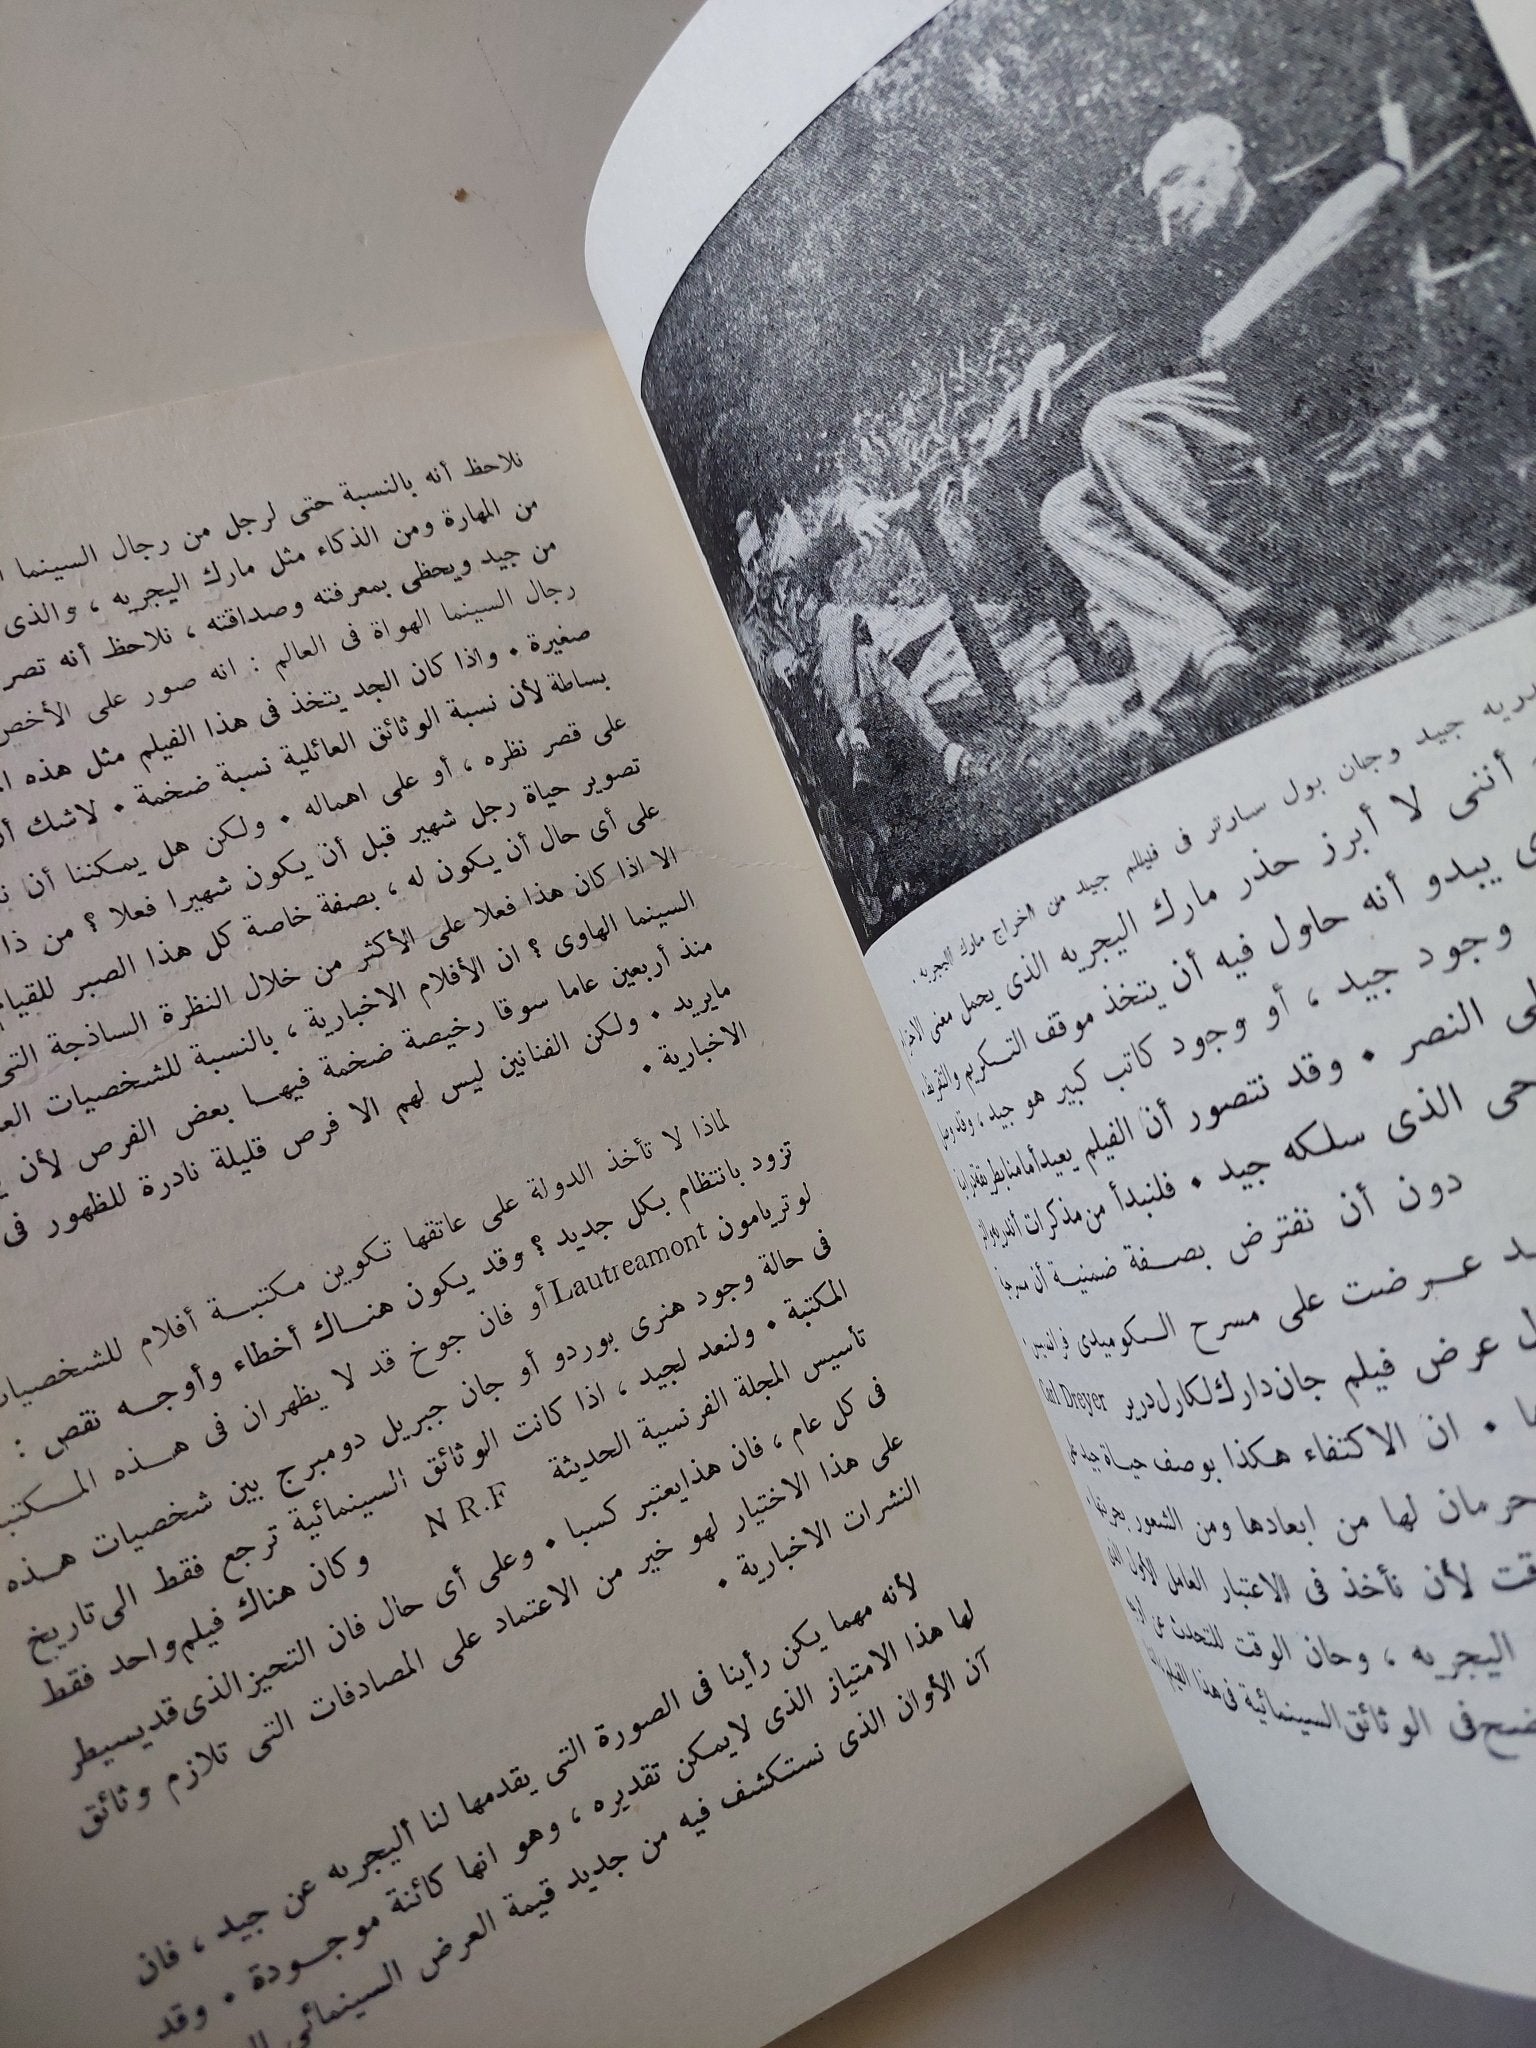 جيد وجان بول سارتر فى فيللم جيد من اخراج مارك اليجريه .
أننى لا أبرز حذر مارك اليجريه الذى يحمل معنى
يبدو أنه حاول فيه أن يتخذ موقف التكريم والتقريظ ،
وجود جيد ، أو وجود كاتب كبير هو جيد ،
النصر . وقد نتصور أن الفيلم يعيد أمامنا بطريقة
الذى سلكه جيد . فلنبدأ من مذكرات أندريه
دون أن نفترض بصفة ضمنية أن
عرضت على مسرح الكوميدى فرانسيز
عرض فيلم جان دارك لكارل درير Carl Dreyer
. ان الاكتفاء هكذا بوصف حياة جيد
حرمان لها من ابعادها ومن الشعور
لأن نأخذ فى الاعتبار العامل الأول الذى
اليجريه ، وحان الوقت للتحدث عن
فى الوثائق السينمائية فى هذا الفيلم
نلاحظ أنه بالنسبة حتى لرجل من رجال السينما
من المهارة ومن الذكاء مثل مارك اليجريه ، والذى
من جيد ويحظى بمعرفته وصداقته ، نلاحظ أنه تصر
رجال السينما الهواة فى العالم : انه صور على الأخص
صغيرة . واذا كان الجد يتخذ فى هذا الفيلم مثل هذه
بساطة لأن نسبة الوثائق العائلية نسبة ضخمة . لاشك أن
على قصر نظره ، أو على اهماله . ولكن هل يمكننا أن
تصوير حياة رجل شهير قبل أن يكون شهيرا فعلا ؟ من ذا
على أى حال أن يكون له ، بصفة خاصة كل هذا الصبر للقيام
الا اذا كان هذا فعلا على الأكثر من خلال النظرة الساذجة التى
السينما الهاوى ؟ ان الأفلام الاخبارية ، بالنسبة للشخصيات
منذ أربعين عاما سوقا رخيصة ضخمة فيها بعض الفرص لأن
مايريد . ولكن الفنانين ليس لهم الا فرص قليلة نادرة للظهور فى
الاخبارية .
لماذا لا تأخذ الدولة على عاتقها تكوين مكتبة أفلام للشخصيات
تزود بانتظام بكل جديد ؟ وقد يكون هناك أخطاء وأوجه نقص :
لوتريامون Lautreamont أو فان جوخ قد لا يظهران فى هذه المكتبة
فى حالة وجود هنرى بوردو أو جان جبريل دومبرج بين شخصيات هذه
المكتبة . ولنعد لجيد ، اذا كانت الوثائق السينمائية ترجع فقط الى تاريخ
تأسيس المجلة الفرنسية الحديثة N R.F وكان هناك فيلم واحد فقط
فى كل عام ، فان هذا يعتبر كسبا . وعلى أى حال فان التحيز الذى قد يسيطر
على هذا الاختيار لهو خير من الاعتماد على المصادفات التى تلازم وثائق
النشرات الاخبارية .
لأنه مهما يكن رأينا فى الصورة التى يقدمها لنا أليجريه عن جيد ، فان
لها هذا الامتياز الذى لايمكن تقديره ، وهو انها كائنة موجودة . وقد
آن الأوان الذى نستكشف فيه من جديد قيمة العرض السينمائى